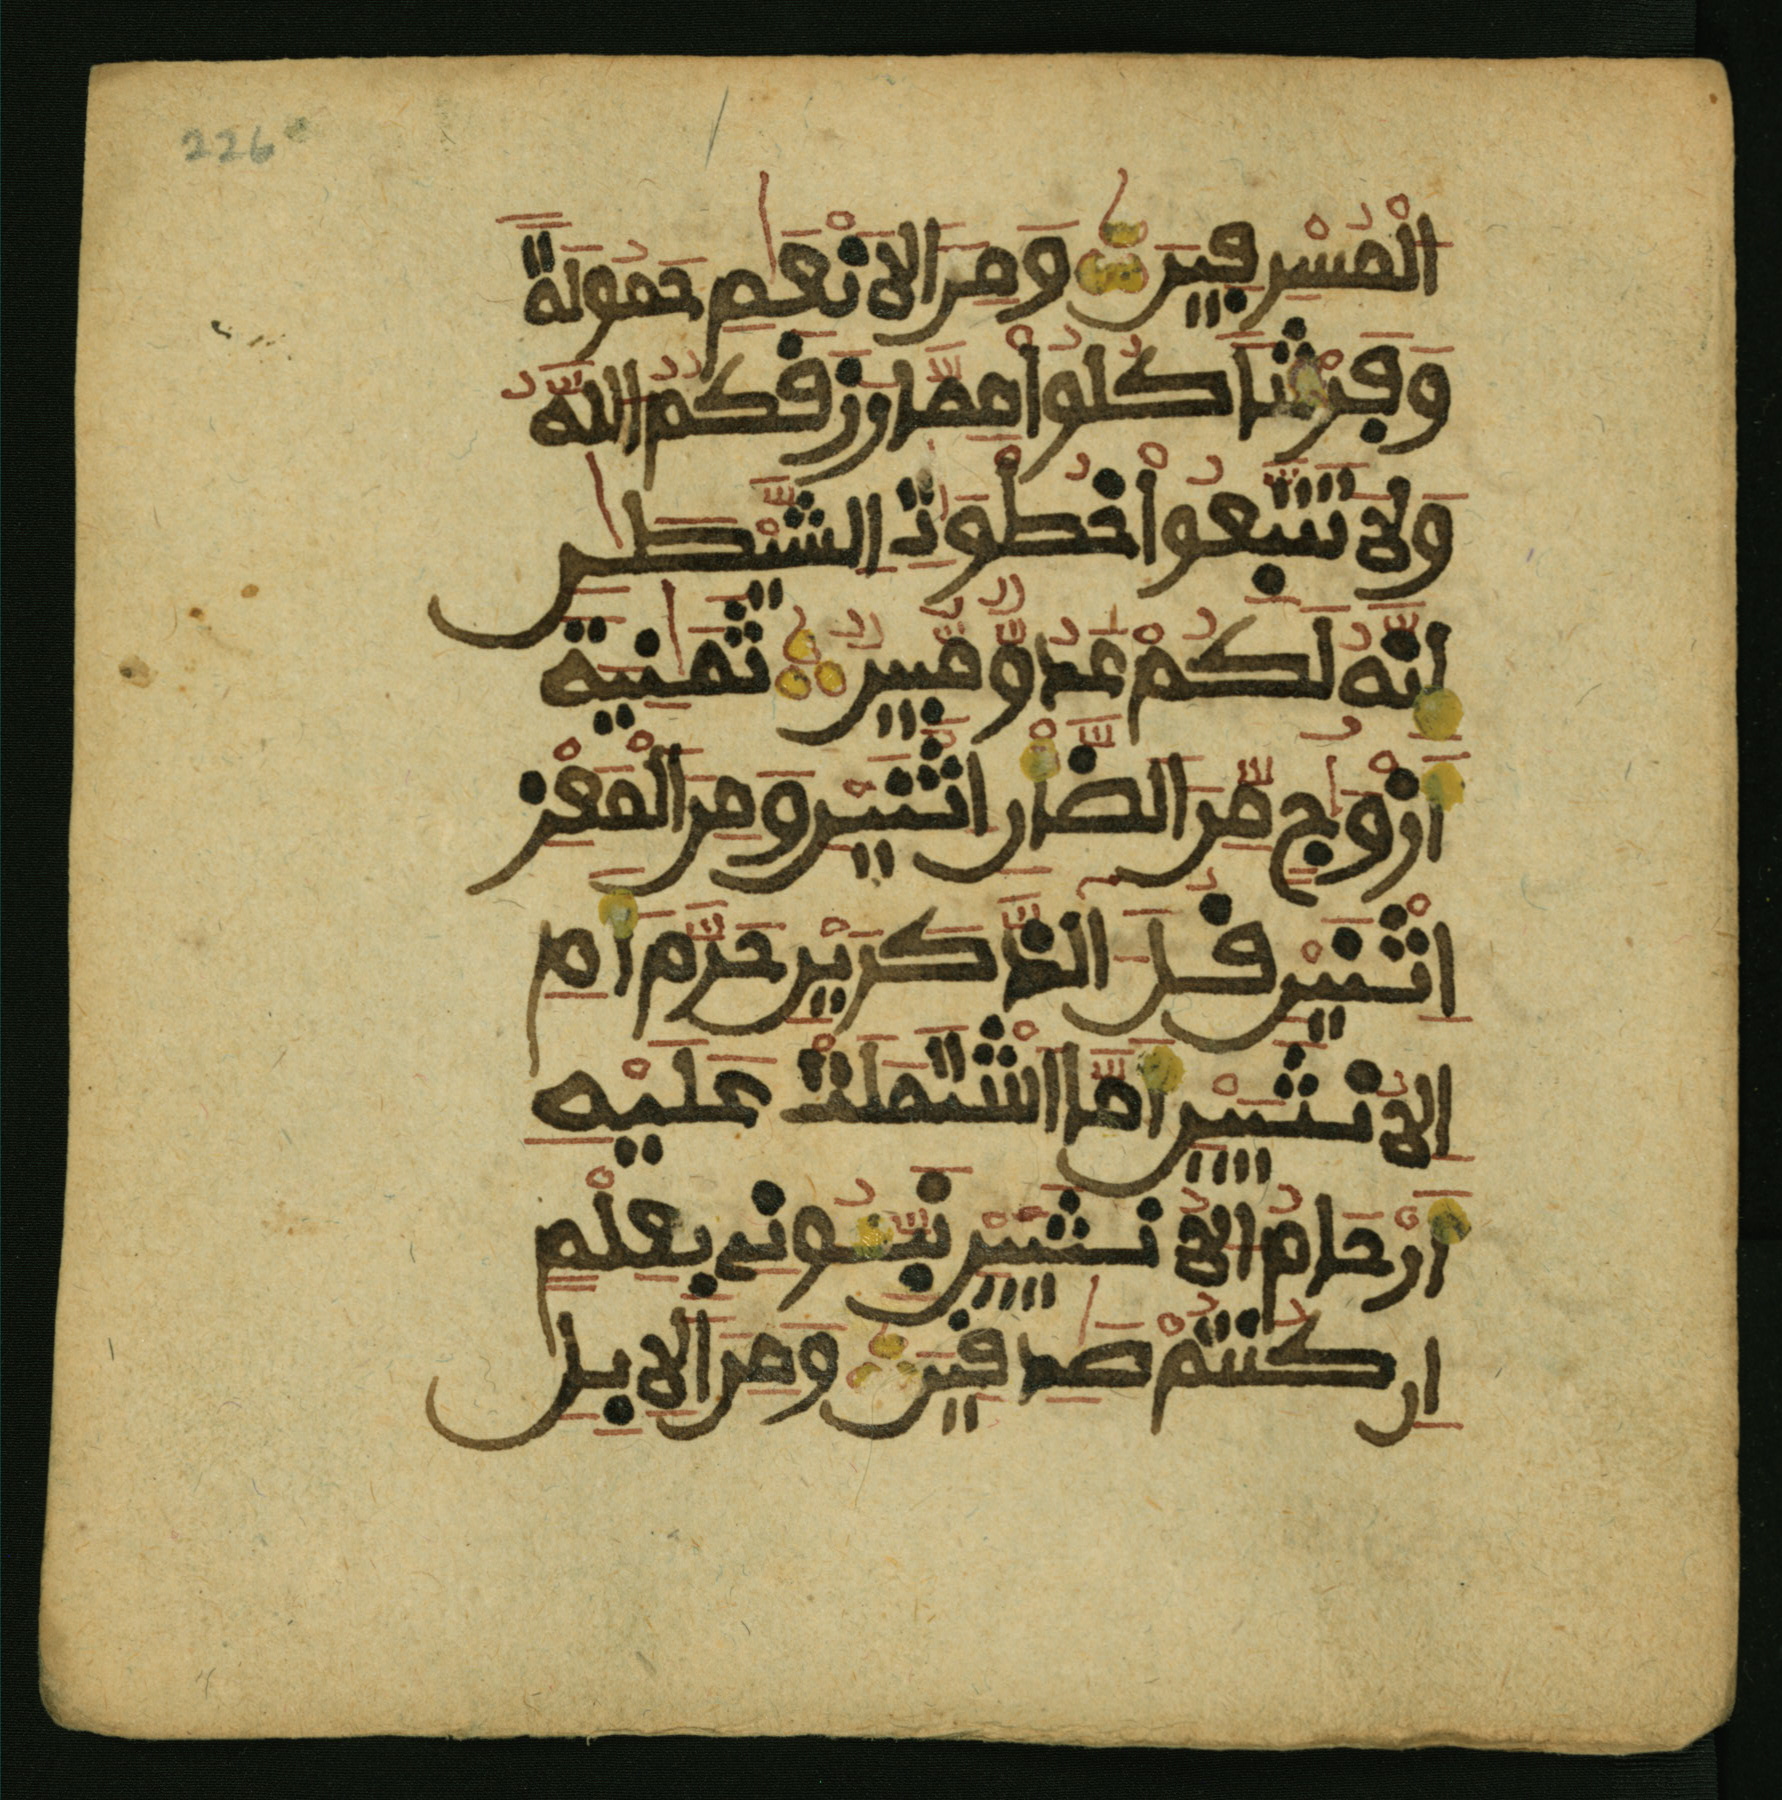 226a
الْمُسْرِفِينَ وَمِنَ الَانْعَٰمِ حَمُولَةً
وَفَرْشًا كُلُوا۟ مِمَّا رَزَقَكُمُ اللَّهُ
وَلَا تَتَّبِعُوا۟ خُطُوَٰتِ الشَّيْطَٰنِ
إِنَّهُۥ لَكُمْ عَدُوٌّ مُّبِينٌ ثَمَٰنِيَةَ
أَزْوَٰجٍ مِّنَ الضَّأْنِ اثْنَيْنِ وَمِنَ الْمَعْزِ
اثْنَيْنِ قُلَ آلذَّكَرَيْنِ حَرَّمَ أَمِ
الُانثَيَيْنِ أَمَّا اشْتَمَلَتْ عَلَيْهِ
أَرْحَامُ الُانثَيَيْنِ نَبِّـُٔونِى بِعِلْمٍ
إِن كُنتُمْ صَٰدِقِينَ وَمِنَ الِابِلِ